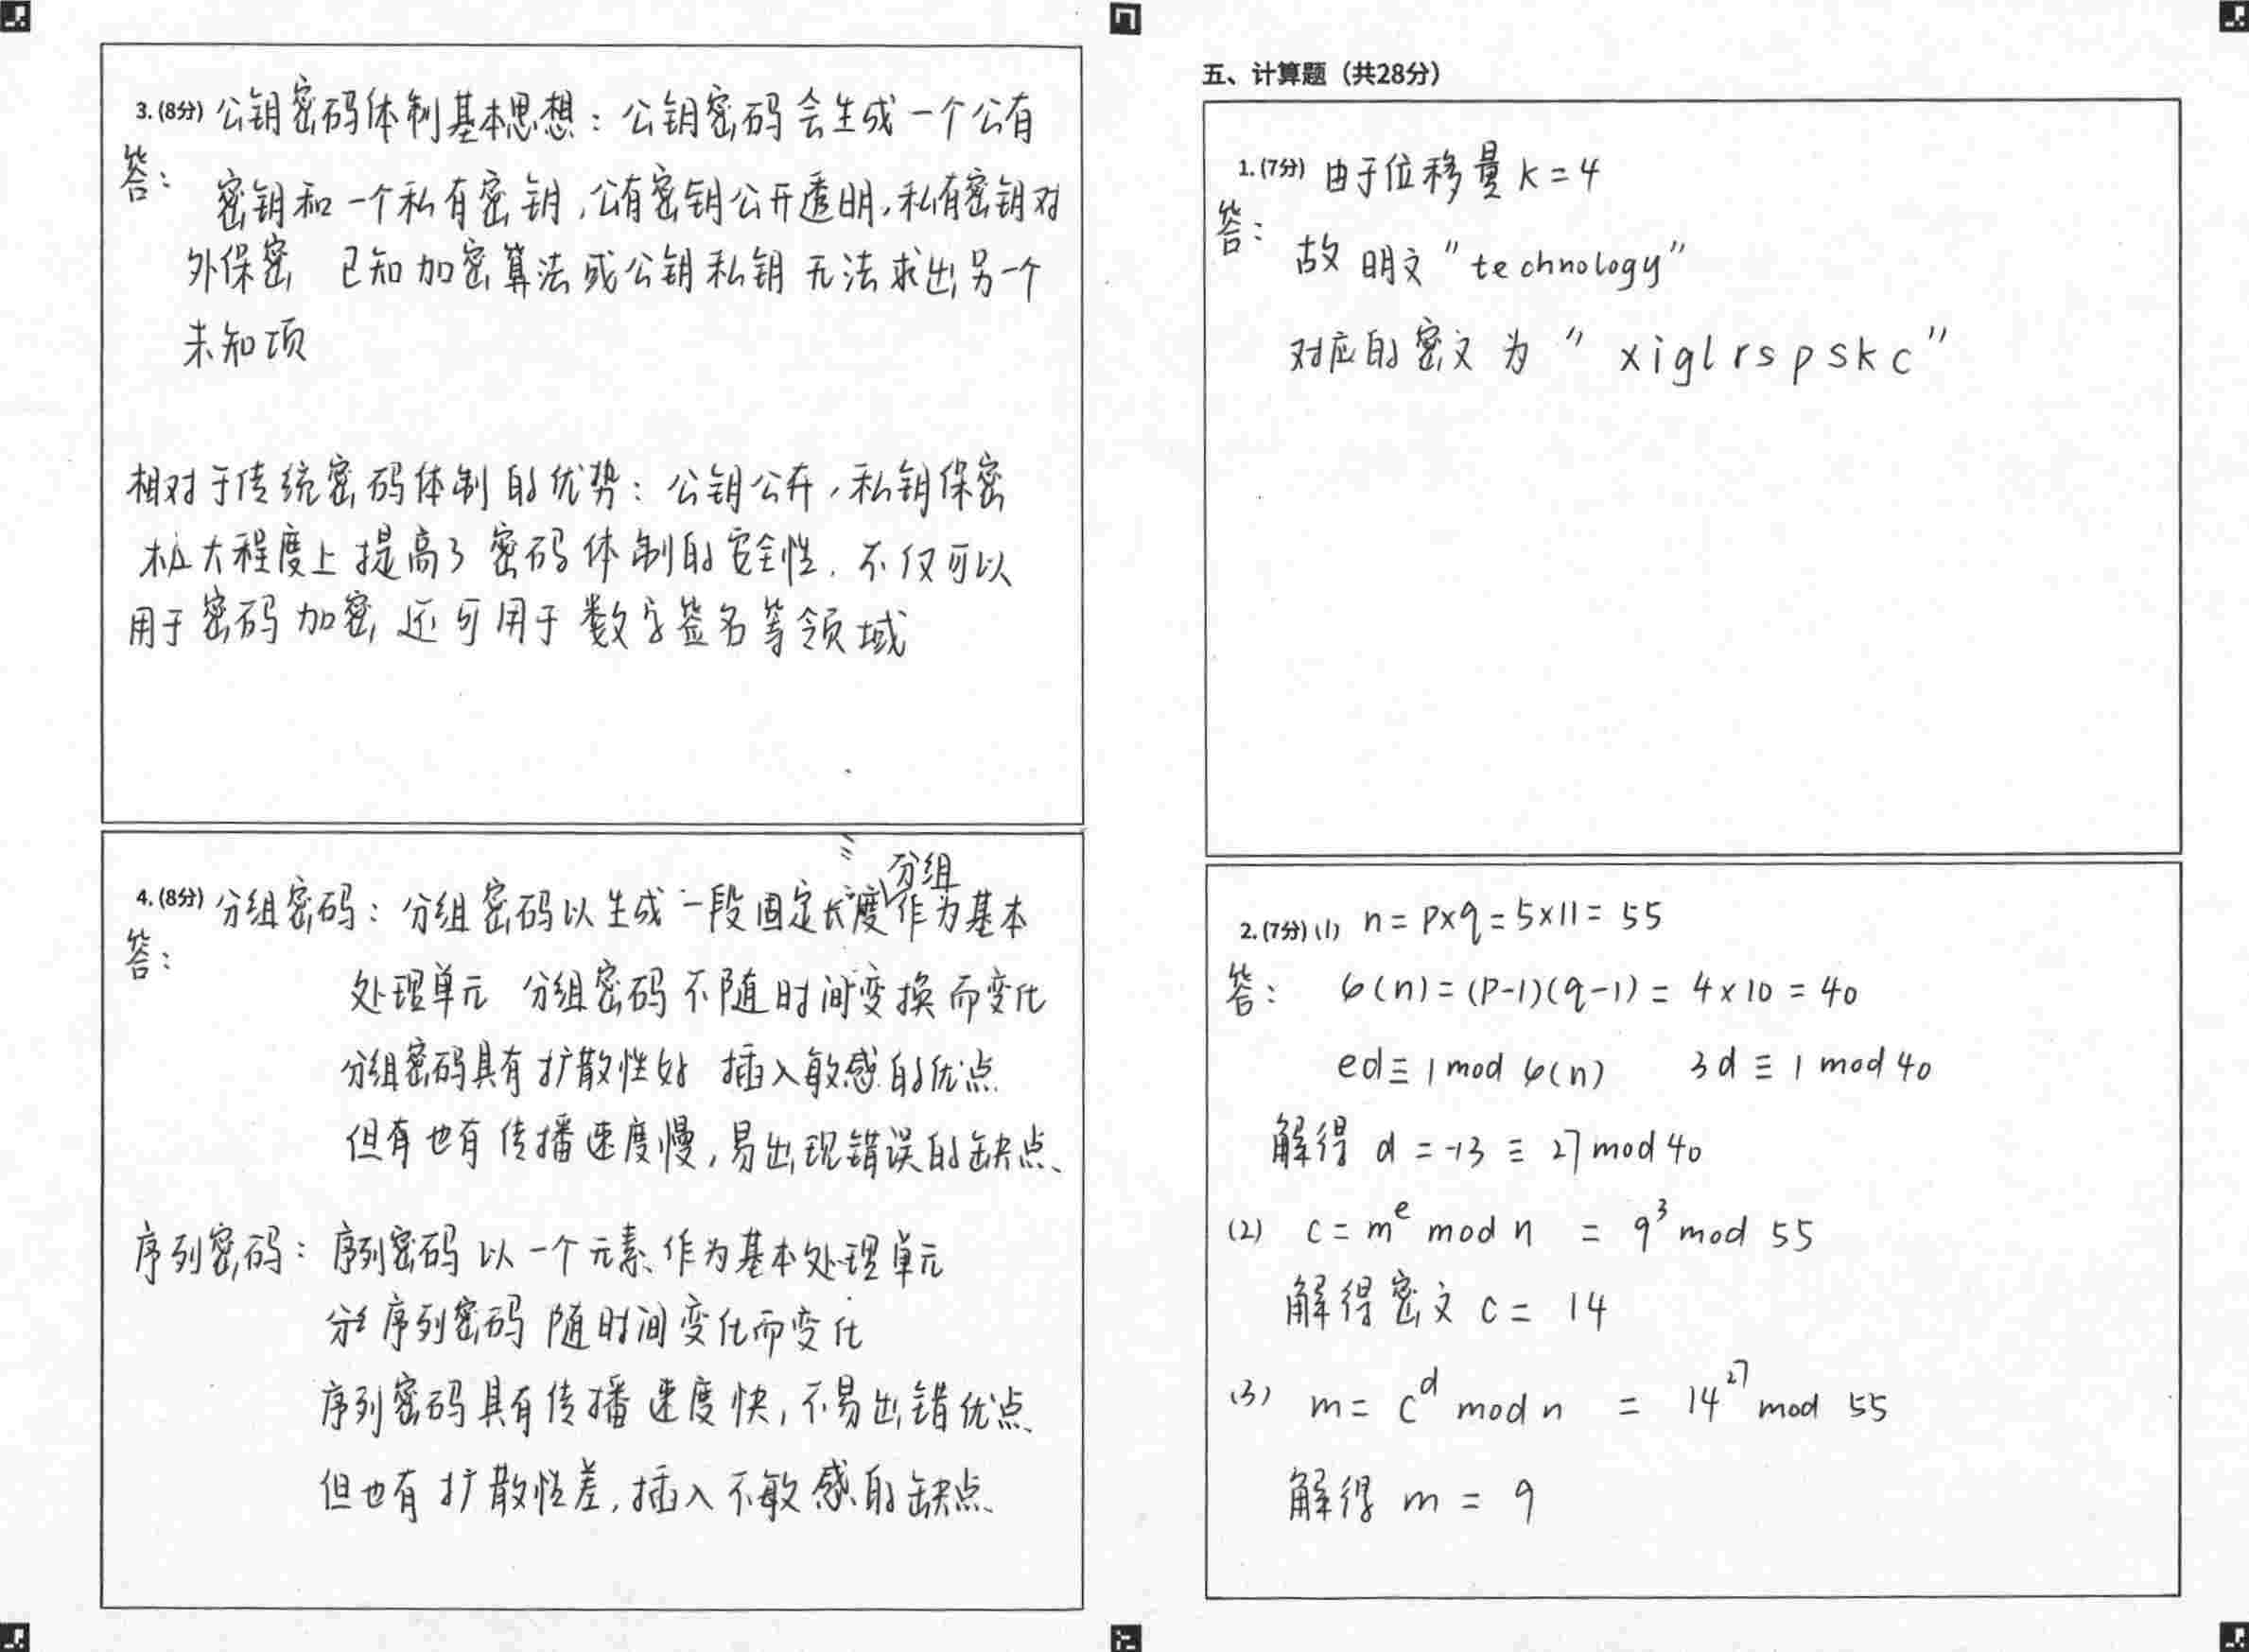 3.(8分) 公钥密码体制基本思想：公钥密码会生成一个公有
答：
密钥和一个私有密钥，公有密钥公开透明，私有密钥对
外保密 已知加密算法或公钥私钥无法求出另一个
未知项
相对于传统密码体制的优势：公钥公开，私钥保密
极大程度上提高了密码体制的安全性.不仅可以
用于密码加密 还可用于数字签名等领域
分组
4.(8分) 分组密码：分组密码以生成一段固定长度作为基本
答：
处理单元 分组密码不随时间变换而变化
分组密码具有扩散性好 插入敏感的优点
但有也有传播速度慢，易出现错误的缺点、
序列密码：序列密码以一个元素作为基本处理单元
序列密码随时间变化而变化
序列密码具有传播速度快，不易出错优点
但也有扩散性差，插入不敏感的缺点、
五、计算题（共28分）
1.(7分) 由于位移量 k = 4
答：
故 明文 "technology"
对应的密文为 " xiglrspskc "
2.(7分) (1) n = p×q = 5×11 = 55
答： φ(n) = (p-1)(q-1) = 4×10 = 40
ed ≡ 1 mod φ(n) 3d ≡ 1 mod 40
解得 d = -13 ≡ 27 mod 40
(2) c = m^e mod n = 9^3 mod 55
解得密文 c = 14
(3) m = c^d mod n = 14^27 mod 55
解得 m = 9